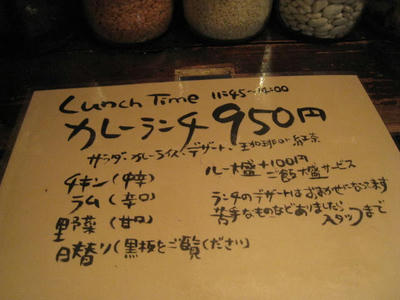 Lunch Time 11:45~14:00
カレーランチ 950円
サラダ・カレーライス・デザート・珈琲or紅茶
チキン(中辛)
ラム(辛口)
野菜(甘口)
日替り(黒板をご覧ください)
ルー大盛+100円
ご飯大盛サービス
ランチのデザートはおまかせになります
苦手なものなどありましたら
スタッフまで